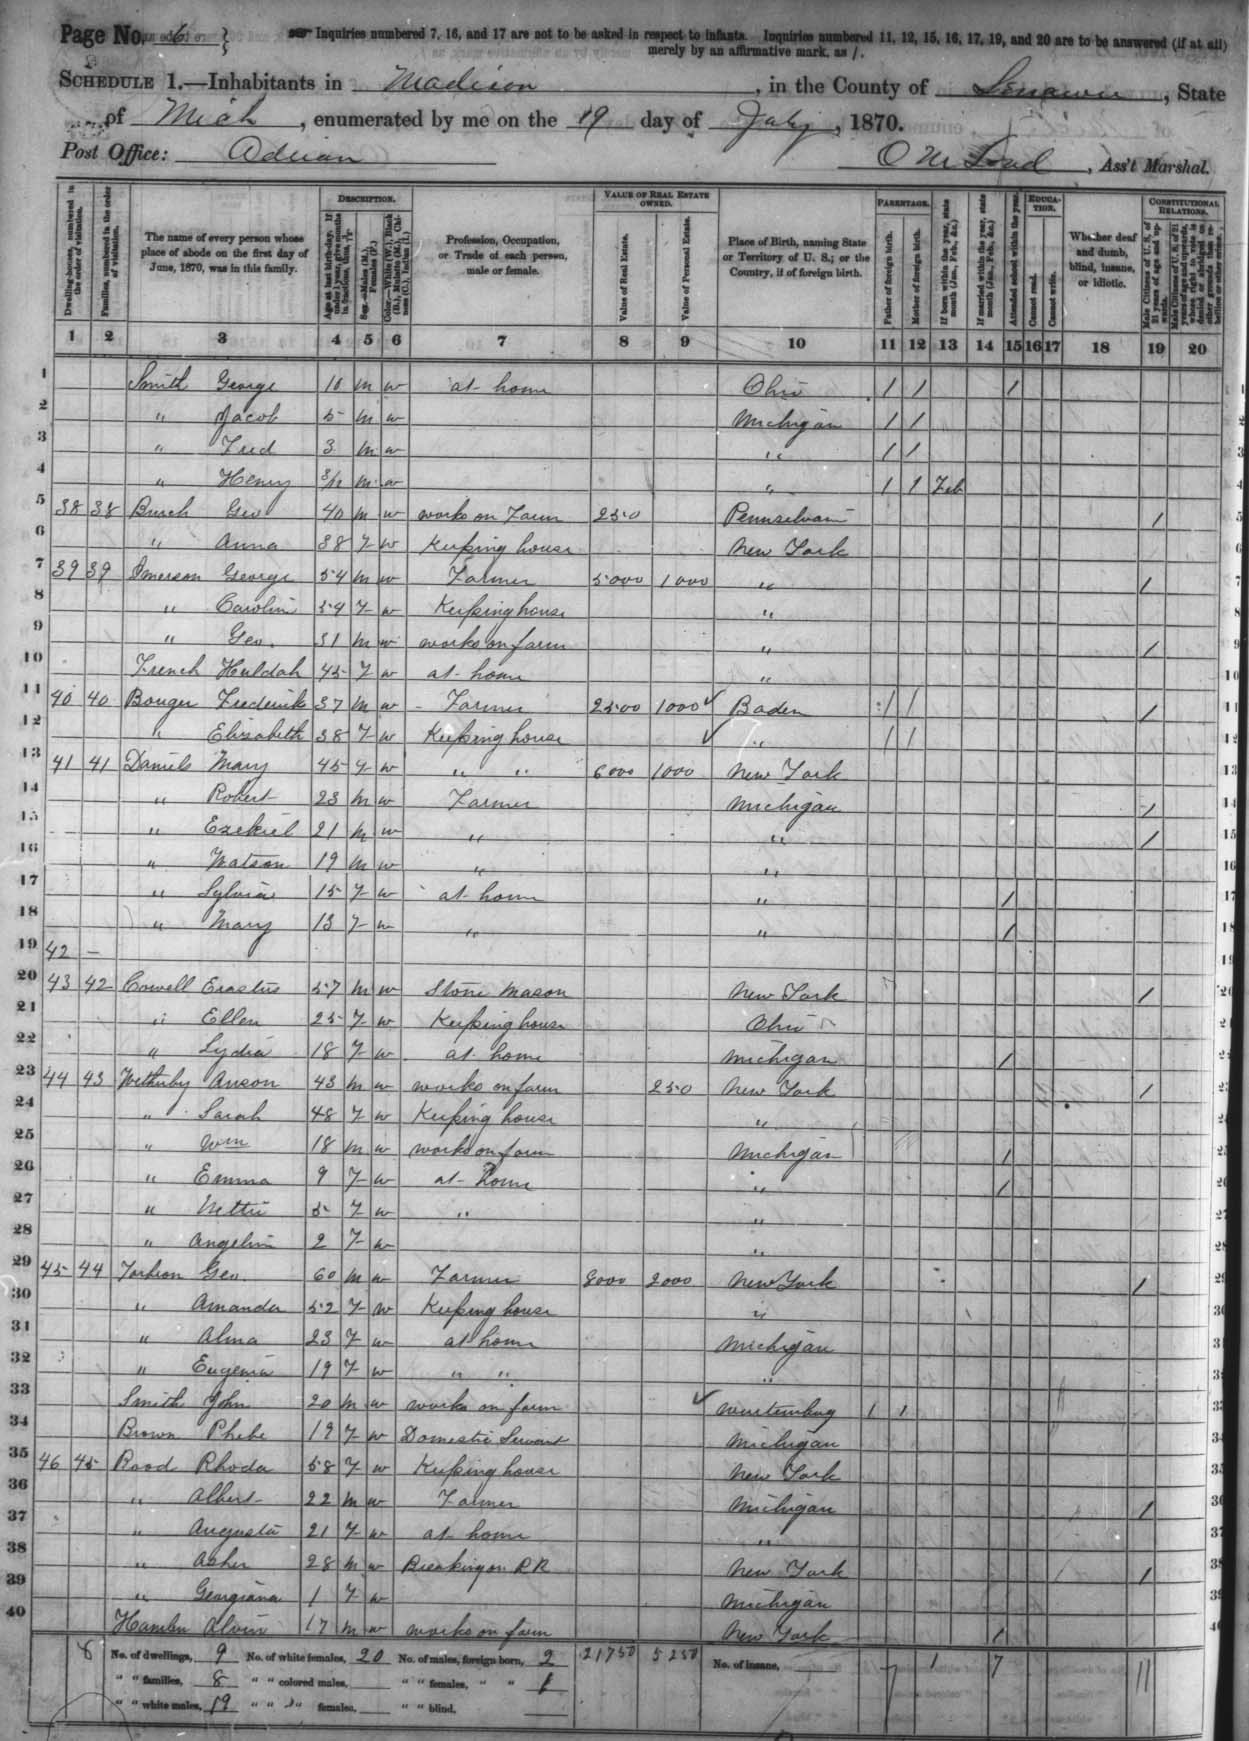 Page No. 6 } Inquiries numbered 7, 16, and 17 are not to be asked in respect to infants. Inquiries numbered 11, 12, 15, 16, 17, 19, and 20 are to be answered (if at all)
merely by an affirmative mark, as /.
SCHEDULE 1.—Inhabitants in Madison, in the County of Lenawee, State
of Mich, enumerated by me on the 19 day of July, 1870.
Post Office: Adrian
O M Lord, Ass't Marshal.
Dwelling-houses, numbered in the order of visitation.
Families, numbered in the order of visitation.
The name of every person whose place of abode on the first day of June, 1870, was in this family.
DESCRIPTION.
Age at last birth-day. If under 1 year, give months in fractions, thus, 3/12
Sex.—Males (M.), Females (F.)
Color.—White (W.), Black (B.), Mulatto (M.), Chinese (C.), Indian (I.)
Profession, Occupation, or Trade of each person, male or female.
VALUE OF REAL ESTATE OWNED.
Value of Real Estate.
Value of Personal Estate.
Place of Birth, naming State or Territory of U. S.; or the Country, if of foreign birth.
PARENTAGE.
Father of foreign birth.
Mother of foreign birth.
If born within the year, state month (Jan., Feb., &c.)
If married within the year, state month (Jan., Feb., &c.)
Attended school within the year.
EDUCATION.
Cannot read.
Cannot write.
Whether deaf and dumb, blind, insane, or idiotic.
CONSTITUTIONAL RELATIONS.
Male Citizens of U. S. of 21 years of age and upwards.
Male Citizens of U. S. of 21 years of age and upwards, whose right to vote is denied or abridged on other grounds than rebellion or other crime.
1 2 3 4 5 6 7 8 9 10 11 12 13 14 15 16 17 18 19 20
1 Smith George 10 m w at home Ohio / / / 1
2 " Jacob 5 m w Michigan / / 2
3 " Fred 3 m w " / / 3
4 " Henry 3/12 m w " / / Feb 4
5 38 38 Burch Geo 40 m w works on Farm 250 Pennselvani / 5
6 " Anna 38 F w Keeping house New York
7 39 39 Imerson George 54 m w Farmer 5000 1000 " / 7
8 " Carolin 54 F w Keeping house " 8
9 " Geo. 31 m w works on farm " / 9
10 French Huldah 45 F w at home " 10
11 40 40 Bouger Frederick 37 m w Farmer 2500 1000 ✓ Baden / / / 11
12 " Elizabeth 38 F w Keeping house ✓ " / / 12
13 41 41 Daniels Mary 45 F w " " 6000 1000 New York 13
14 " Robert 23 m w Farmer Michigan / 14
15 " Ezekiel 21 m w " " / 15
16 " Watson 19 m w " " 16
17 " Sylvia 15 F w at home " / 17
18 " Mary 13 F w " " / 18
19 42 –
20 43 42 Cowell Erastus 57 m w Stone Mason New York / 20
21 " Ellen 25 F w Keeping house Ohio
22 " Lydia 18 F w at home Michigan /
23 44 43 Wetherby Anson 43 m w works on farm 250 New York /
24 " Sarah 48 F w Keeping house "
25 " Wm 18 m w works on farm Michigan /
26 " Emma 9 F w at home " /
27 " Nettie 5 F w " "
28 " Angelin 2 F w "
29 45 44 Geo. 60 m w Farmer 8000 2000 New York /
30 " Amanda 52 F w Keeping house "
31 " Alma 23 F w at home Michigan
32 " Eugenia 19 F w " " "
33 Smith John 20 m w works on farm ✓ Wurtemburg / /
34 Brown Phebe 19 F w Domestic Servant Michigan
35 46 45 Rood Rhoda 58 F w Keeping house New York
36 " Albert 22 m w Farmer Michigan /
37 " Augusta 21 F w at home "
38 " Asher 28 m w Breaking on R R New York /
39 " Georgiana 1 F w Michigan
40 Hamlin Alvin 17 m w works on farm New York /
8 No. of dwellings, 9 No. of white females, 20 No. of males, foreign born, 2 21750 5250 No. of insane, 7 1 7 11
" " families, 8 " " colored males, " " females, " " 1
" " white males, 19 " " " females, " " blind,